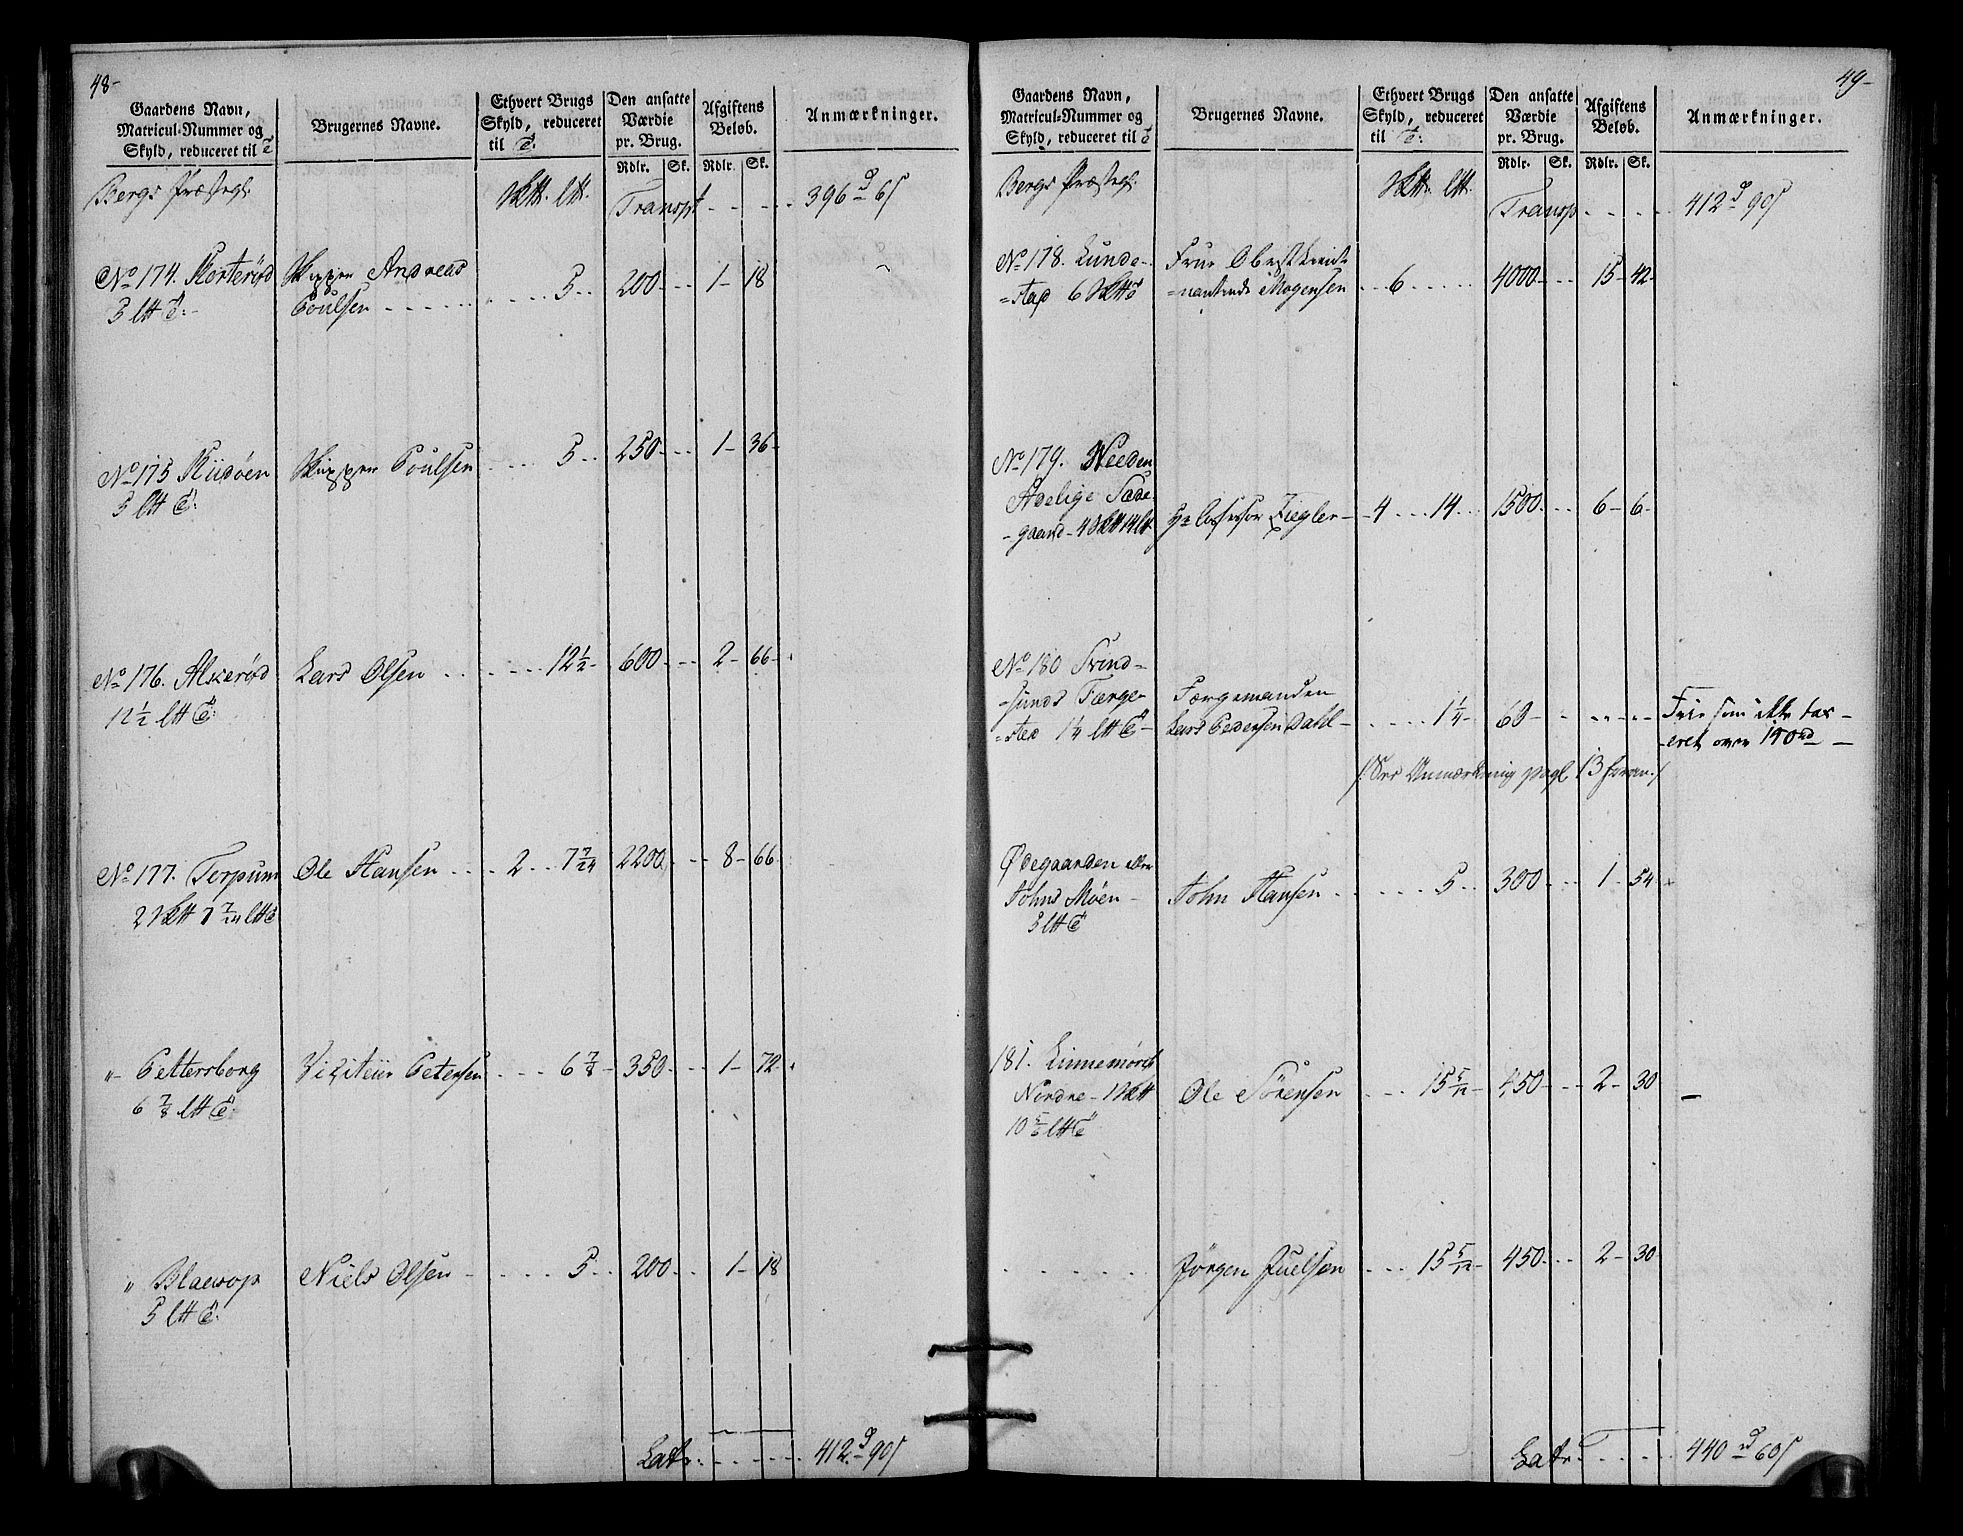 48-
Gaardens Navn,
Matricul-Nummer og
Skyld, reduceret til
Brugernes Navne.
Ethvert Brugs
Skyld, reduceret
til
Den ansatte
Værdie
pr. Brug.
Rdlr. Sk.
Afgiftens
Beløb.
Rdlr. Sk.
Anmærkninger.
Bergs Præstegl.
Transpt 396 65
No 174. Korterød Skipper Andreas
5 Poulsen 5 200 1 18
No 175 Kiidöen Skipper Poulsen 5 250 1 36
5
No 176. Akerød Lars Olsen 12 1/2 600 2 66
12 1/2
No 177. Torpum Ole Hansen 2 7 7/24 2200 8 66
2 7 7/24
" Pettersborg Visiteur Petersen 6 7/8 350 1 72
6 7/8
" Blaesop Niels Olsen 5 200 1 18
5
Latr. 412 90
49-
Gaardens Navn,
Matricul-Nummer og
Skyld, reduceret til
Brugernes Navne.
Ethvert Brugs
Skyld, reduceret
til
Den ansatte
Værdie
pr. Brug.
Rdlr. Sk.
Afgiftens
Beløb.
Rdlr. Sk.
Anmærkninger.
Bergs Præstegl.
Transp 412 90
No 178. Lunde- Frue Obrstlieut-
=stad 6 =nantinde Mogensen 6 4000 15 42
No 179. Weeden
Adelige Sæde
-gaard 4 14 Hr Assessor Ziegler 4 14 1500 6 6
No 180 Svind-
-sunds Færge- Færgemanden
=sted 1 1/4 Lars Pedersen Dahl 1 1/4 60 Frie som ikke tax-
-eret over 150
(: See Anmærkning pagl 13 forran :)
Ødegaarden eller
Johns Moen John Hansen 5 300 1 54
5
181. Linnemørch
Nordre 1 Ole Sørensen 15 5/12 450 2 30
10 5/6
Jørgen Juelsen 15 5/12 450 2 30
Latr. 440 60